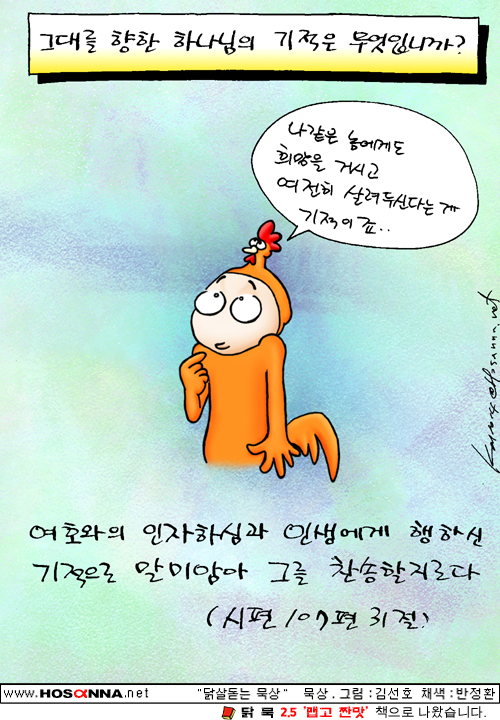 그대를 향한 하나님의 기적은 무엇입니까?
나같은 놈에게도
희망을 거시고
여전히 살려두신다는 게
기적이죠..
여호와의 인자하심과 인생에게 행하신
기적으로 말미암아 그를 찬송할지로다
(시편 107편 31절)
www.HOSANNA.net "닭살돋는 묵상" 묵상.그림:김선호 채색:반정환
닭 묵 2.5 '맵고 짠맛' 책으로 나왔습니다.